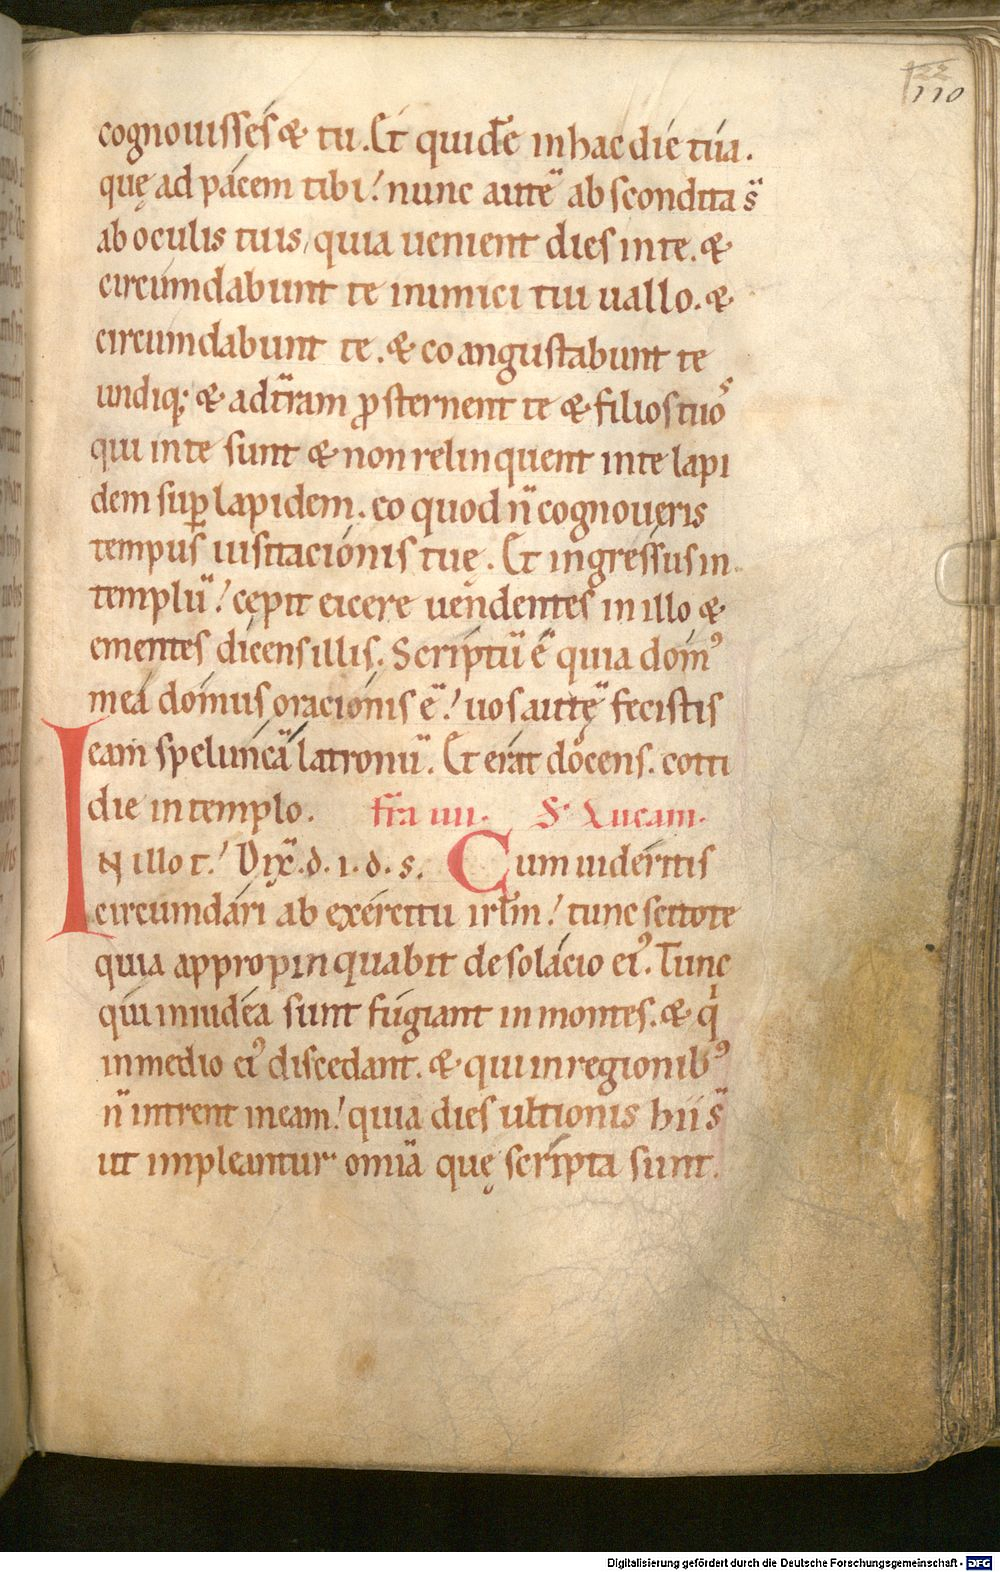 122
110
cognouisses & tu. Et quidē in hac die tua.
quę ad pacem tibi! nunc autē abscondita s̄
ab oculis tuis, quia uenient dies in te. &
circumdabunt te inimici tui uallo. &
circumdabunt te. & coangustabunt te
undiq; & ad t̄ram ꝓsternent te & filios tuos
qui in te sunt & non relinquent in te lapi
dem sup̱ lapidem. eo quod n̄ cognoueris
tempus uisitacionis tuę. Et ingressus in
templū! cępit eicere uendentes in illo &
ementes dicens illis. Scriptū ē quia domꝰ
mea domus oracionis ē! uos autē fecistis
eam speluncā latronū. Et erat docens. cotti
die in templo. fr̄a iiii. S. Lucam.
IN illo t! Dix̄.d.i.d.s. Cum uideritis
circumdari ab exercitu irl̄m! tunc scitote
quia appropinquabit desolacio eiꝰ. Tunc
qui in iudea sunt fugiant in montes. & qⁱ
in medio eiꝰ discedant. & qui in regionibꝰ
n̄ intrent in eam! quia dies ultionis hii s̄
ut impleantur omīa quę scripta sunt.
Digitalisierung gefördert durch die Deutsche Forschungsgemeinschaft - DFG